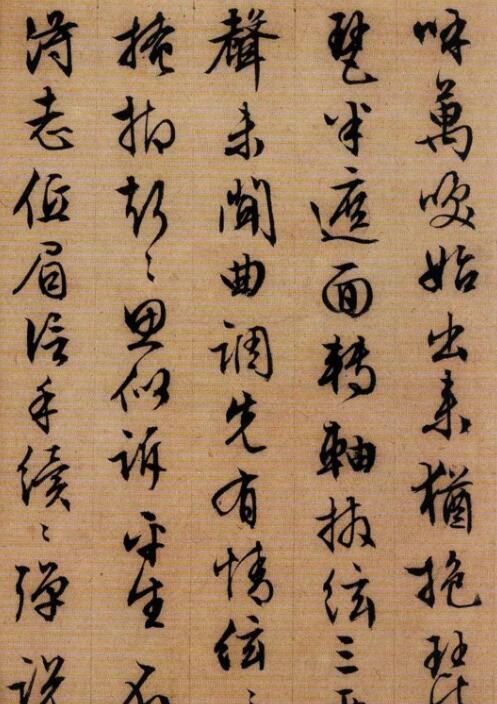 呼萬喚始出來猶抱琵
琶半遮面轉軸撥絃三兩
聲未聞曲調先有情絃〻
掩抑聲〻思似訴平生不
得志低眉信手續〻彈說